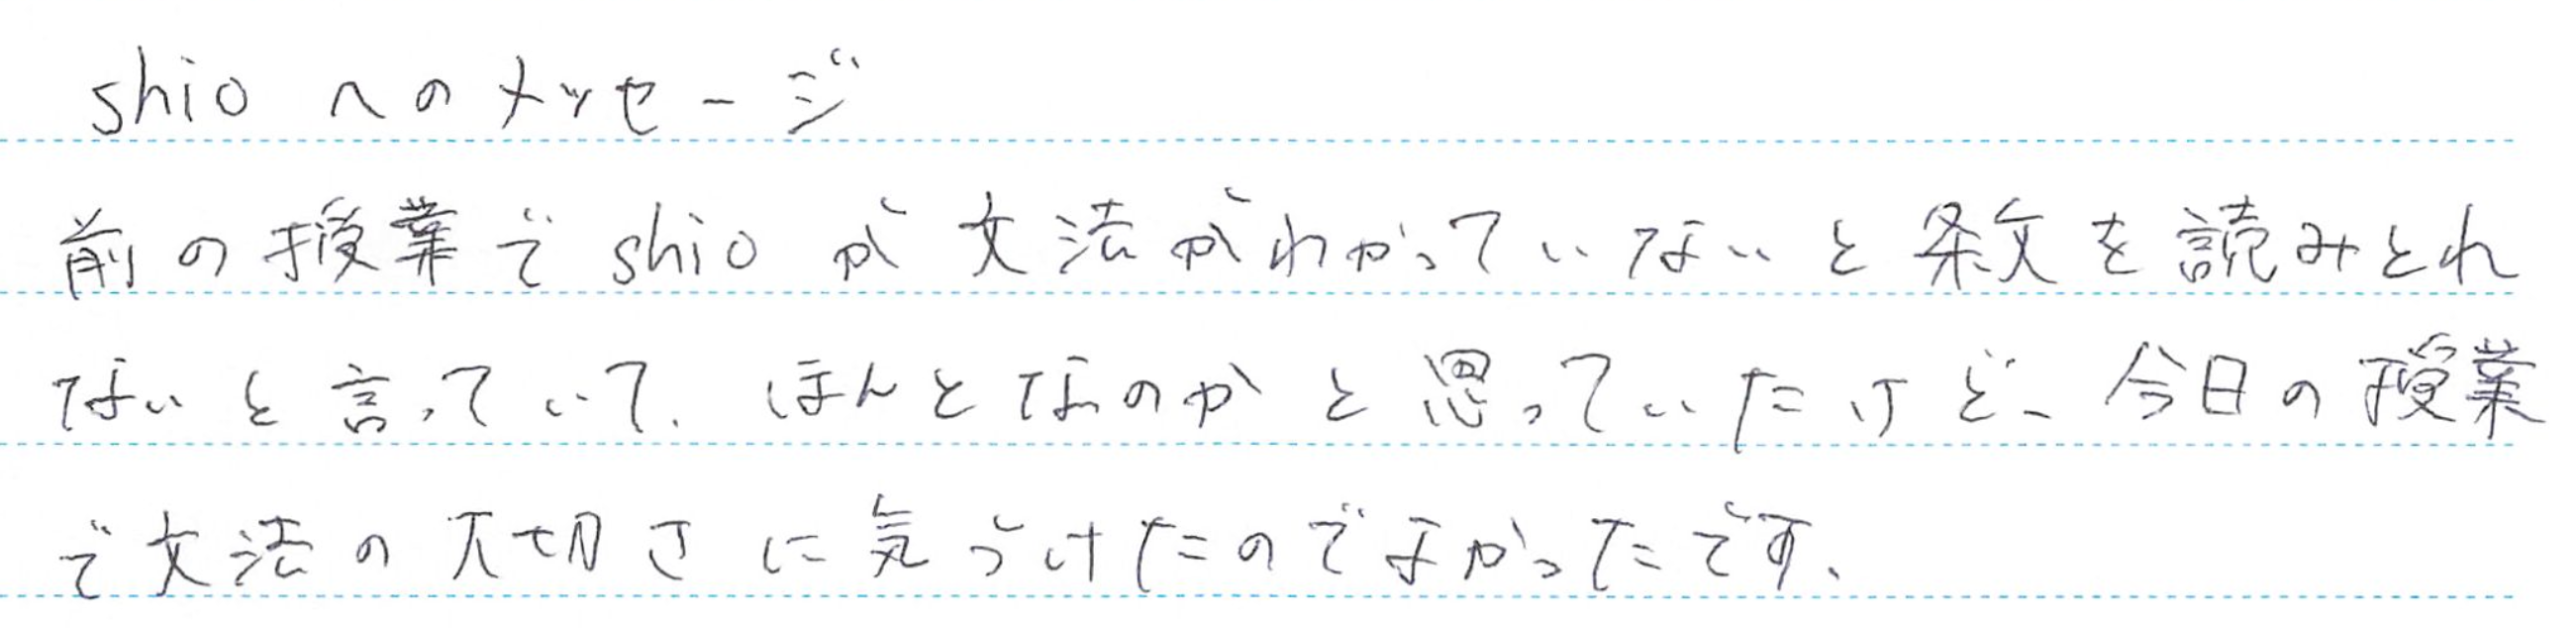 shioへのメッセージ
前の授業でshioが文法がわかっていないと条文を読みとれ
ないと言っていて、ほんとなのかと思っていたけど、今日の授業
で文法の大切さに気づけたのでよかったです。